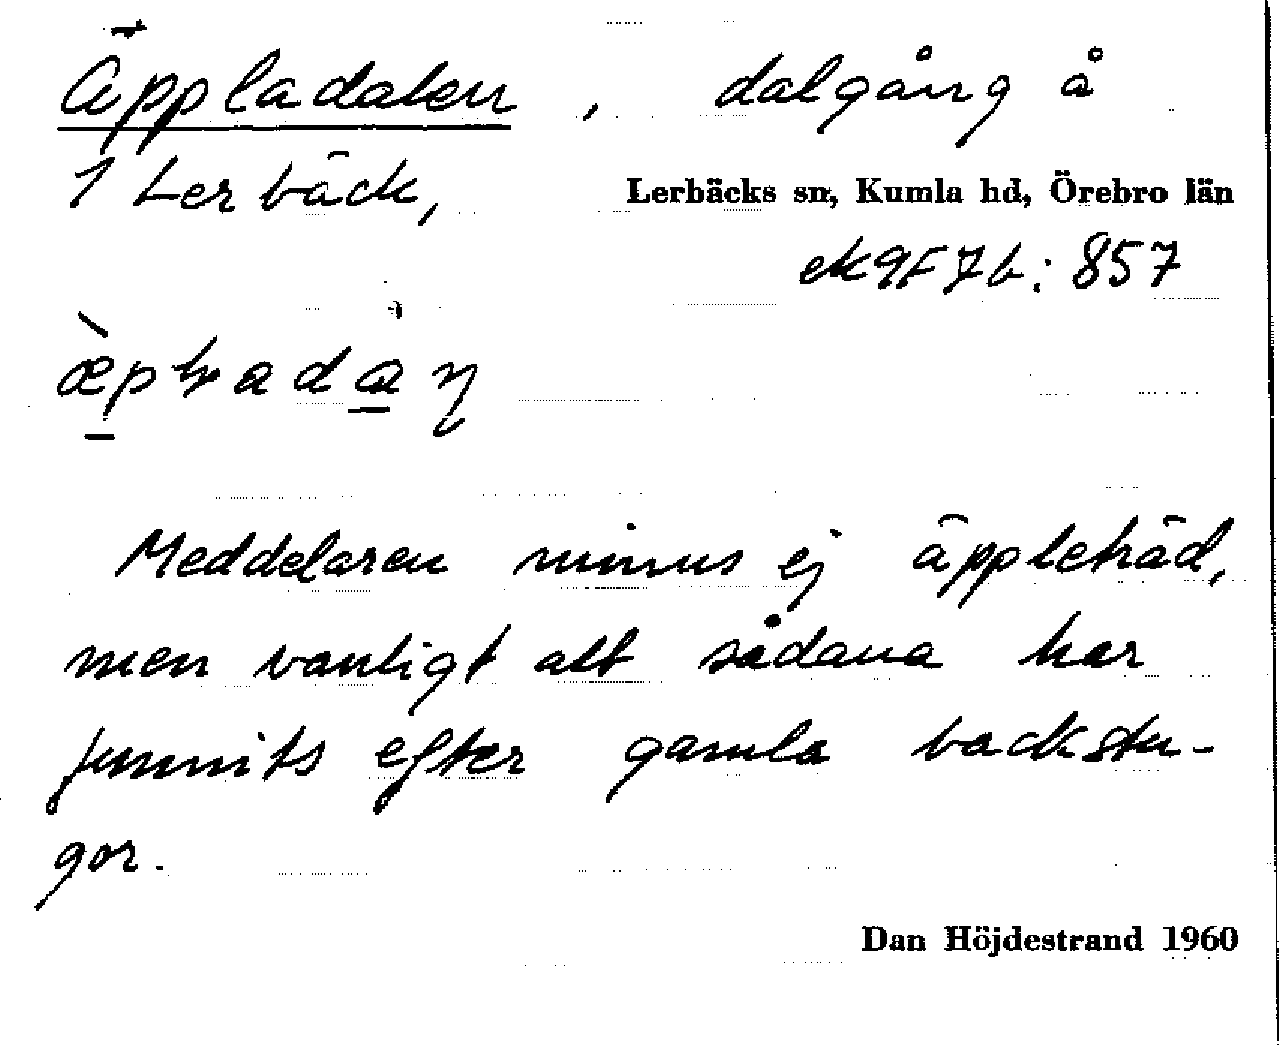 Äppladalen, dalgång å
1 Lerbäck,
Lerbäcks sn, Kumla hd, Örebro län
ek 9F7b: 857
Meddelaren minns ej äppleträd,
men vanligt att sådana har
funnits efter gamla backstu-
gor.
Dan Höjdestrand 1960